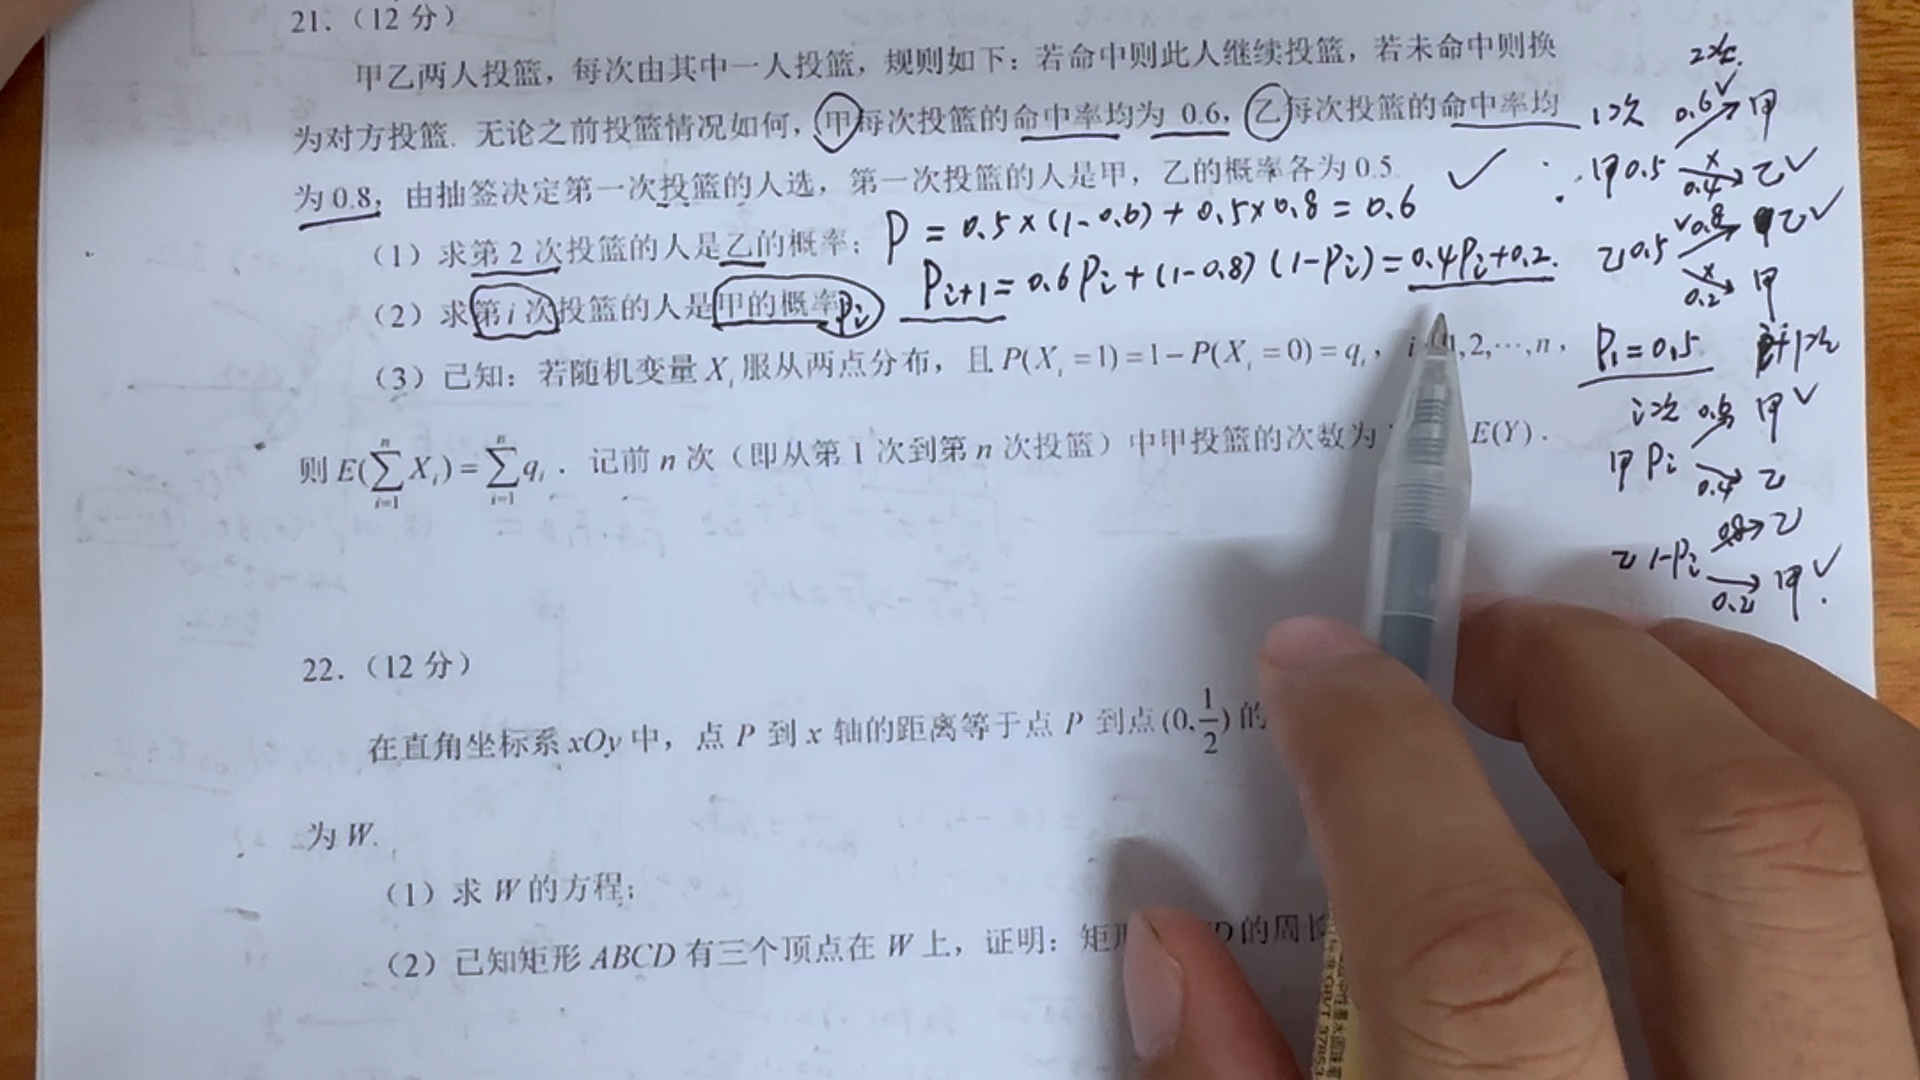 21.（12 分）
甲乙两人投篮，每次由其中一人投篮，规则如下：若命中则此人继续投篮，若未命中则换
为对方投篮. 无论之前投篮情况如何，甲每次投篮的命中率均为 0.6，乙每次投篮的命中率均
为 0.8，由抽签决定第一次投篮的人选，第一次投篮的人是甲，乙的概率各为 0.5.
（1）求第 2 次投篮的人是乙的概率； P = 0.5×(1-0.6)+0.5×0.8=0.6 ✓
（2）求第 i 次投篮的人是甲的概率 Pi Pi+1=0.6Pi+(1-0.8)(1-Pi)=0.4Pi+0.2.
（3）已知：若随机变量 Xi 服从两点分布，且 P(Xi=1)=1-P(Xi=0)=qi，i 1,2,…,n，
则 E(∑_{i=1}^{n} Xi)=∑_{i=1}^{n} qi. 记前 n 次（即从第 1 次到第 n 次投篮）中甲投篮的次数为 E(Y).
22.（12 分）
在直角坐标系 xOy 中，点 P 到 x 轴的距离等于点 P 到点(0,1/2)的
为 W.
（1）求 W 的方程；
（2）已知矩形 ABCD 有三个顶点在 W 上，证明：矩形 D 的周长
2次.
1次 0.6✓ 甲
甲0.5 × 0.4 乙✓
乙0.5 ✓0.8 乙✓
× 0.2 甲
P1=0.5 i+1次
i次 甲✓
甲 Pi 0.4 乙
乙 1-Pi 0.8 乙
0.2 甲✓.